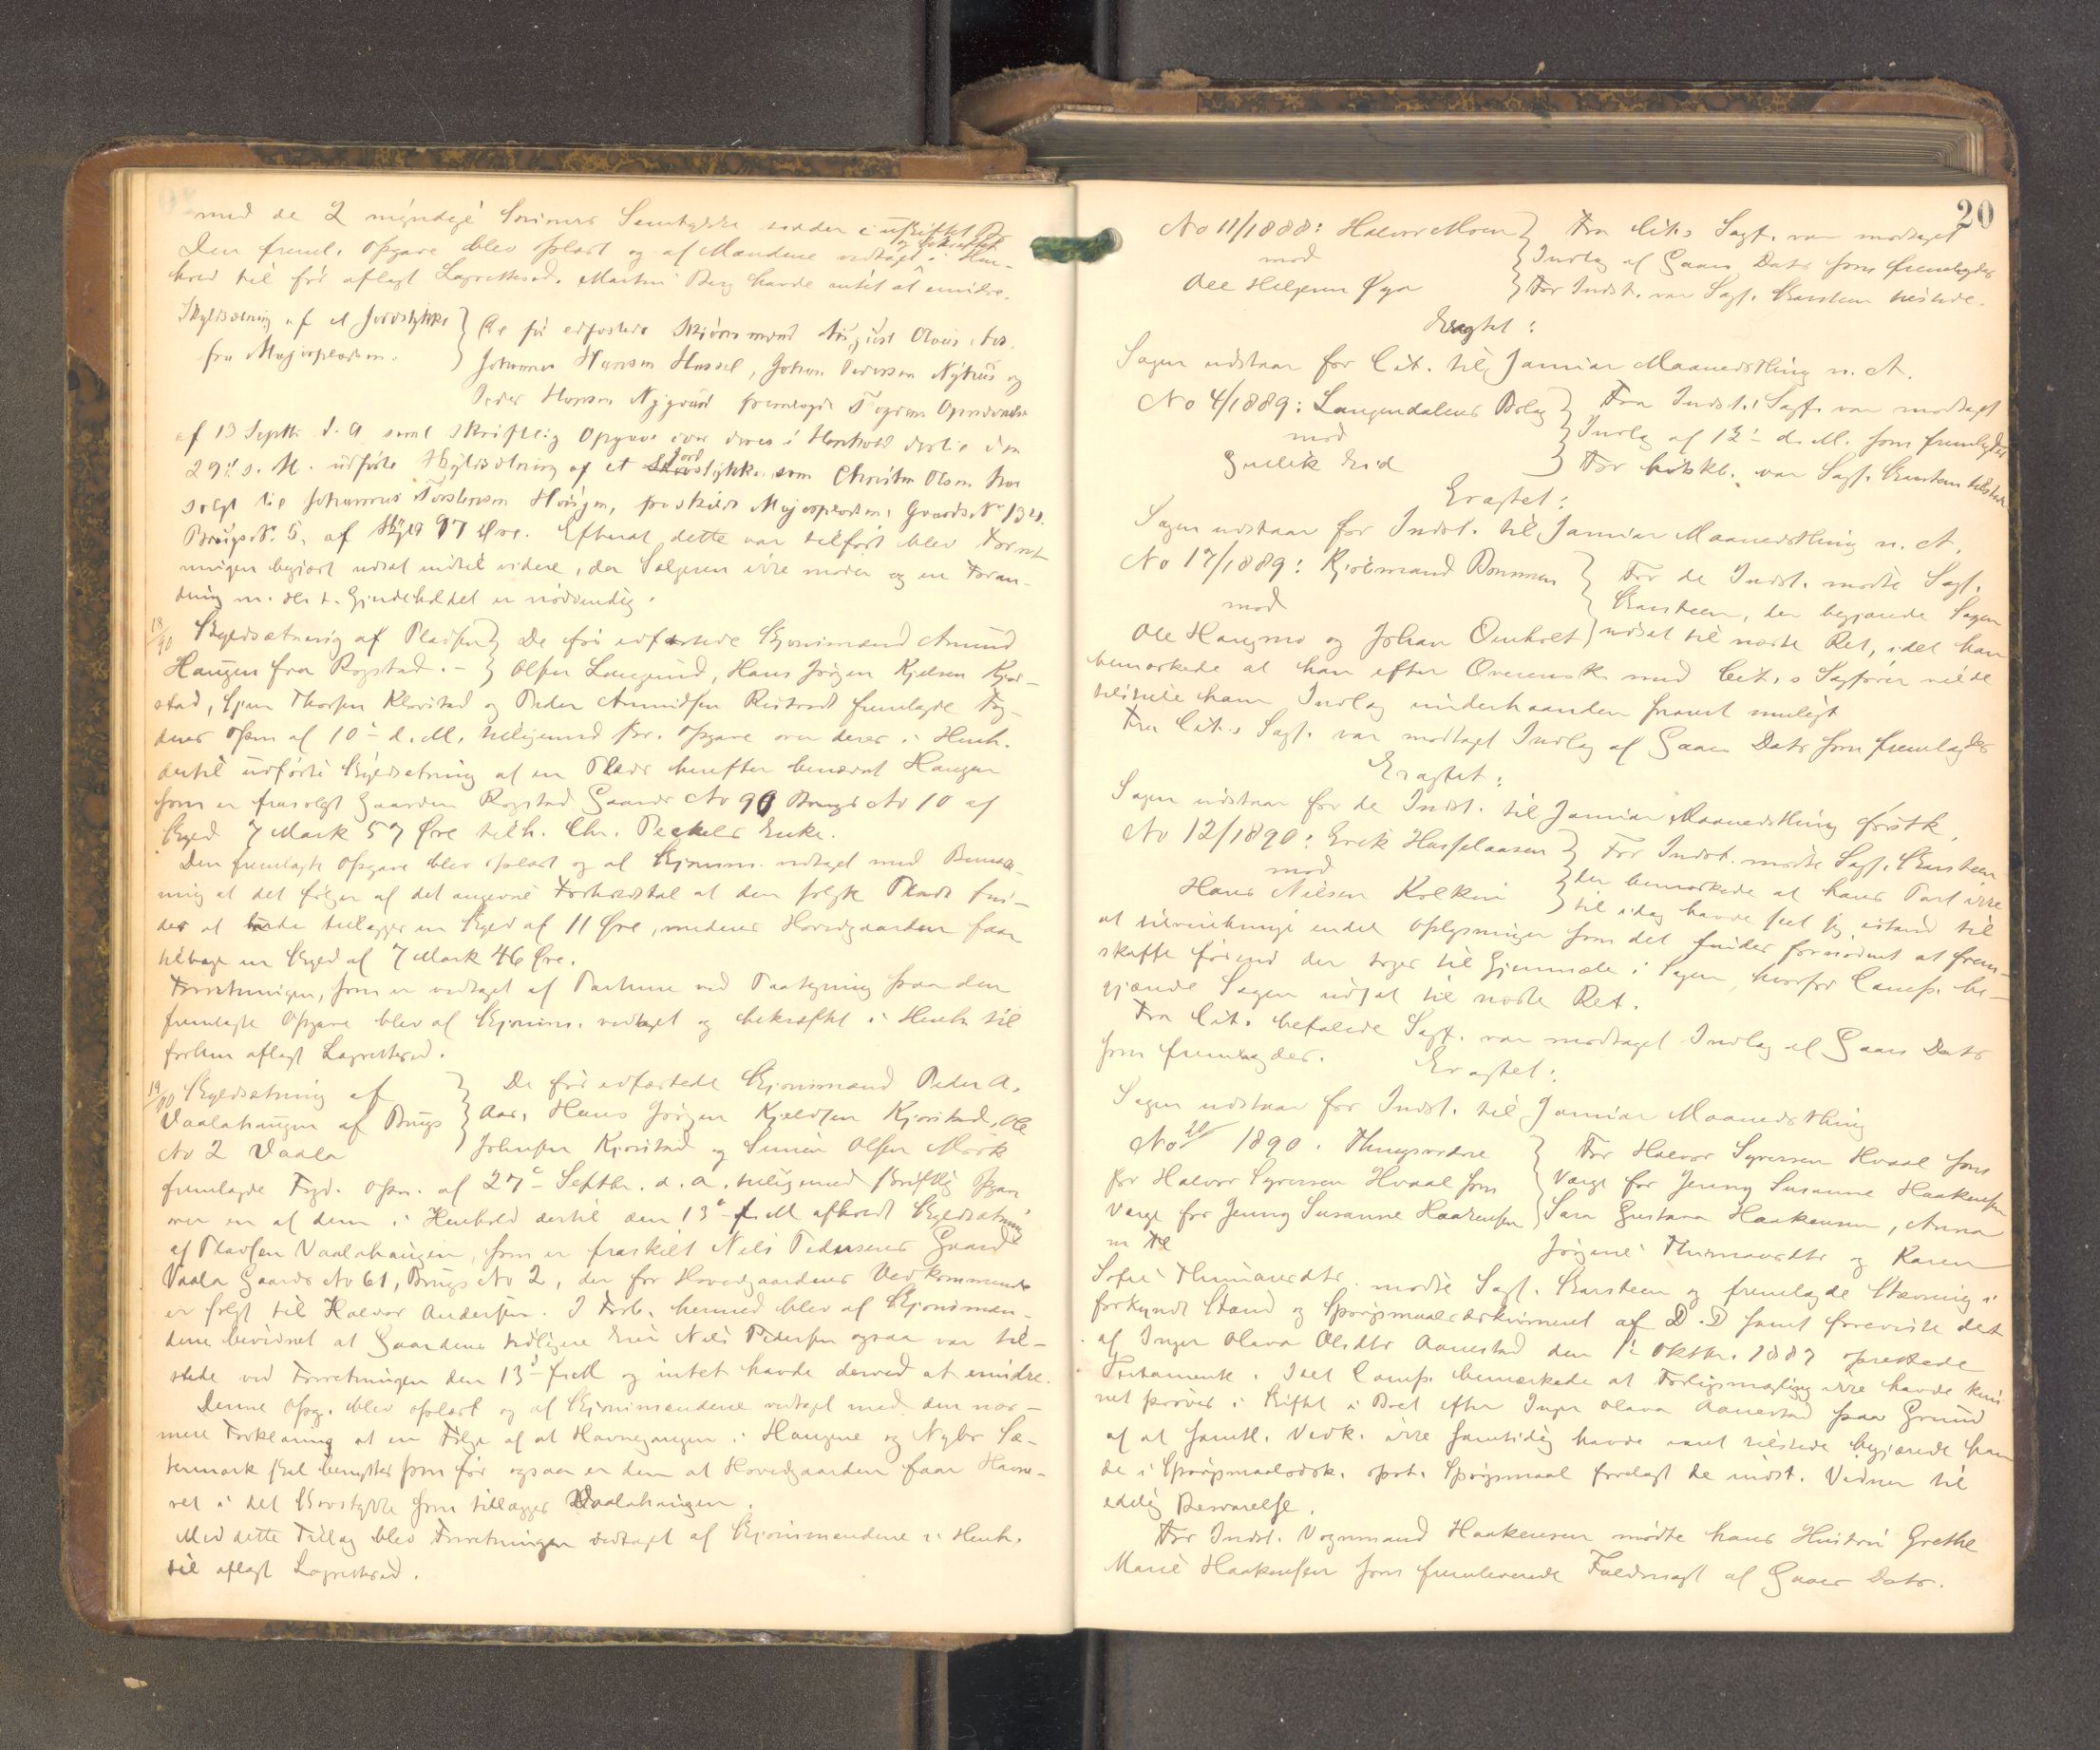 med de 2 myndige Sønners Samtykke sidder i uskiftet Bo
og bekræftet
Den freml. Opgave blev oplæst og af Mændene vedtaget i Hen-
hold til før aflagt Lagrettesed. Martin Berg havde intet at erindre.
Skyldsætning af et Jordstykke } De før edfæstede Skjønsmænd August Olaus Aas,
fra Majorpladsen. } Johannes Hansen Hassel, Johan Pedersen Nyhus og
Peder Hansen Nygaard fremlagde Fogdens Opnævnelse
af 13 Septbr d. A. samt skriftlig Opgave over deres i Henhold dertil den
Jord
29de s. M. udførte Skyldsætning af et stykke, som Christen Olsen har
solgt til Johannes Torstensen Haugen, fraskilt Majorpladsen, Gaards No 132.
Brugs No. 5, af Skyld 97 Øre. Efterat dette var tilført blev Forret-
ningen begjært udsat indtil videre, da Sælgeren ikke møder og en Foran-
dring m. H. t. Gjerdeholdet er nødvendig.
18/90 Skyldsætning af Pladsen } De før edfæstede Skjønsmænd Amund
Haugen fra Rogstad. - } Olsen Langrud, Hans Jørgen Kjelsen Kjør-
stad, Thorsen Kløvstad og Peder Amundsen Rustand fremlagde Fog-
dens Opn. af 10de d. M. tilligemed skr. Opgave over deres i Henh.
dertil udførte Skyldsætning af en Plads herefter benævnt Haugen
som er frasolgt Gaarden Rogstad Gaards No 90 Brugs No 10 af
Skyld 7 Mark 57 Øre tilh. Chr. Peckels Enke.
Den fremlagte Opgave blev oplæst og af Skjønsm. vedtaget med Bemærk-
ning at det følger af det angivne Forholdstal at den solgte Plads fin-
des at burde tillægges en Skyld af 11 Øre, medens Hovedgaarden faar
tilbage en Skyld af 7 Mark 46 Øre.
Forretningen, som er vedtaget af Parterne ved Paategning paa den
fremlagte Opgave blev af Skjønsm. vedtaget og bekræftet i Henh. til
forhen aflagt Lagrettesed.
19/90 Skyldsætning af } De før edfæstede Skjønsmænd Peder A.
Vaalahaugen af Brugs } Aas, Hans Jørgen Kjeldsen Kjørstad, Ole
No 2 Vaala } Johnsen Kjørstad og Simen Olsen Mørk
fremlagde Fogd. Opn. af 27de Septbr. d. A. tilligemed skriftlig Opgave
over en af dem i Henhold dertil den 13de f. M. afholdt Skyldsætning
af Pladsen Vaalahaugen, som er fraskilt Nils Pedersens Gaard
Vaala Gaards No 61, Brugs No 2, der for Hovedgaardens Vedkommende
er solgt til Halvor Andersen. I Forb. hermed blev af Skjønsmæn-
dene bevidnet at Gaardens tidligere Eier Nils Pedersen ogsaa var til-
stede ved Forretningen den 13de f. M. og intet havde derved at erindre.
Denne Opg. blev oplæst og af Skjønsmændene vedtaget med den nær-
mere Forklaring at en Følge af at Havnegangen i Haugene og Nybo Sæ-
termark skal benyttes som før ogsaa er den at Hovedgaarden faar Havne-
ret i det Skovstykke som tillægges Vaalahaugen.
Med dette Tillæg blev Forretningen vedtaget af Skjønsmændene i Henh.
til aflagt Lagrettesed.
20
No 11/1888: Halvor Moen } Fra Cit.s Sagf. var modtaget
mod } Indlæg af Gaars Dato som fremlagdes
Ole Helgesen Øya } For Indst. var Sagf. Karsteen tilstede.
Eragtet:
Sagen udstaar for Cit. til Januar Maanedsthing n. A.
No 4/1889: Langendalens Bolag } Fra Indst. Sagf. var modtaget
mod } Indlæg af 12te d. M. som fremlagdes
Gullik Eid } For Hovedcit. var Sagf. Karsteen tilstede
Eragtet:
Sagen udstaar for Indst. til Januar Maanedsthing n. A.
No 17/1889: Kjøbmand Bonnen } For de Indst. mødte Sagf.
mod } Karsteen, der begjærede Sagen
Ole Haugmo og Johan Omholt } udsat til næste Ret, idet han
bemærkede at han efter Overensk. med Cit.s Sagfører vilde
tilstille ham Indlæg underhaanden snarest muligt
Fra Cit.s Sagf. var modtaget Indlæg af Gaars Dato som fremlagdes
Eragtet:
Sagen udstaar for de Indst. til Januar Maanedsthing førstk.
No 12/1890: Erik Hasselaasen } For Indst. mødte Sagf. Karsteen
mod } der bemærkede at hans Part ikke
Hans Nilsen Kolkin } til idag havde seet sig istand til
at tilveiebringe endel Oplysninger som det findes fornødent at frem-
skaffe førend der tages til Gjenmæle i Sagen, hvorfor Comp. be-
gjærede Sagen udsat til næste Ret.
Fra Cit. befalede Sagf. var modtaget Indlæg af Gaars Dato
som fremlagdes. Eragtet:
Sagen udstaar for Indst. til Januar Maanedsthing
No 20/1890. Thingsvidne } For Halvor Syversen Hvaal som
for Halvor Syversen Hvaal som } Værge for Jenny Susanne Haakensen
Værge for Jenny Susanne Haakensen } Sara Gustava Haakensen, Anna
m. Fl. Jørgine Thimansdtr og Karen
Sofie Thimansdtr. mødte Sagf. Karsteen og fremlagde Stævning i
forkyndt Stand og Spørgsmaalsdokument af D. D. samt foreviste det
af Inger Olava Olsdtr Aanestad den 1ste Oktbr. 1887 oprettede
Testamente. Idet Comp. bemærkede at Forligsmægling ikke havde kun-
net prøves i Skiftet i Boet efter Inger Olava Aanestad paa Grund
af at samtl. Vedk. ikke samtidig havde været tilstede begjærede han
de i Spørgsmaalsdok. opst. Spørgsmaal forelagt de indst. Vidner til
edelig Besvarelse.
For Indst. Vognmand Haakensen mødte hans Hustru Grethe
Marie Haakensen som fremleverede Fuldmagt af Gaars Dato.